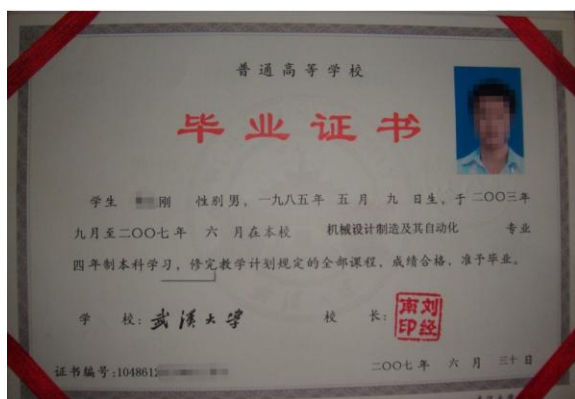 普通高等学校
毕业证书
学生 刚 性别男，一九八五年 五 月 九 日生，于二〇〇三年
九月至二〇〇七年 六 月在本校 机械设计制造及其自动化 专业
四年制本科学习，修完教学计划规定的全部课程，成绩合格，准予毕业。
学 校：武汉大学 校 长：刘经南印
证书编号：1048612 二〇〇七年 六 月 三十日